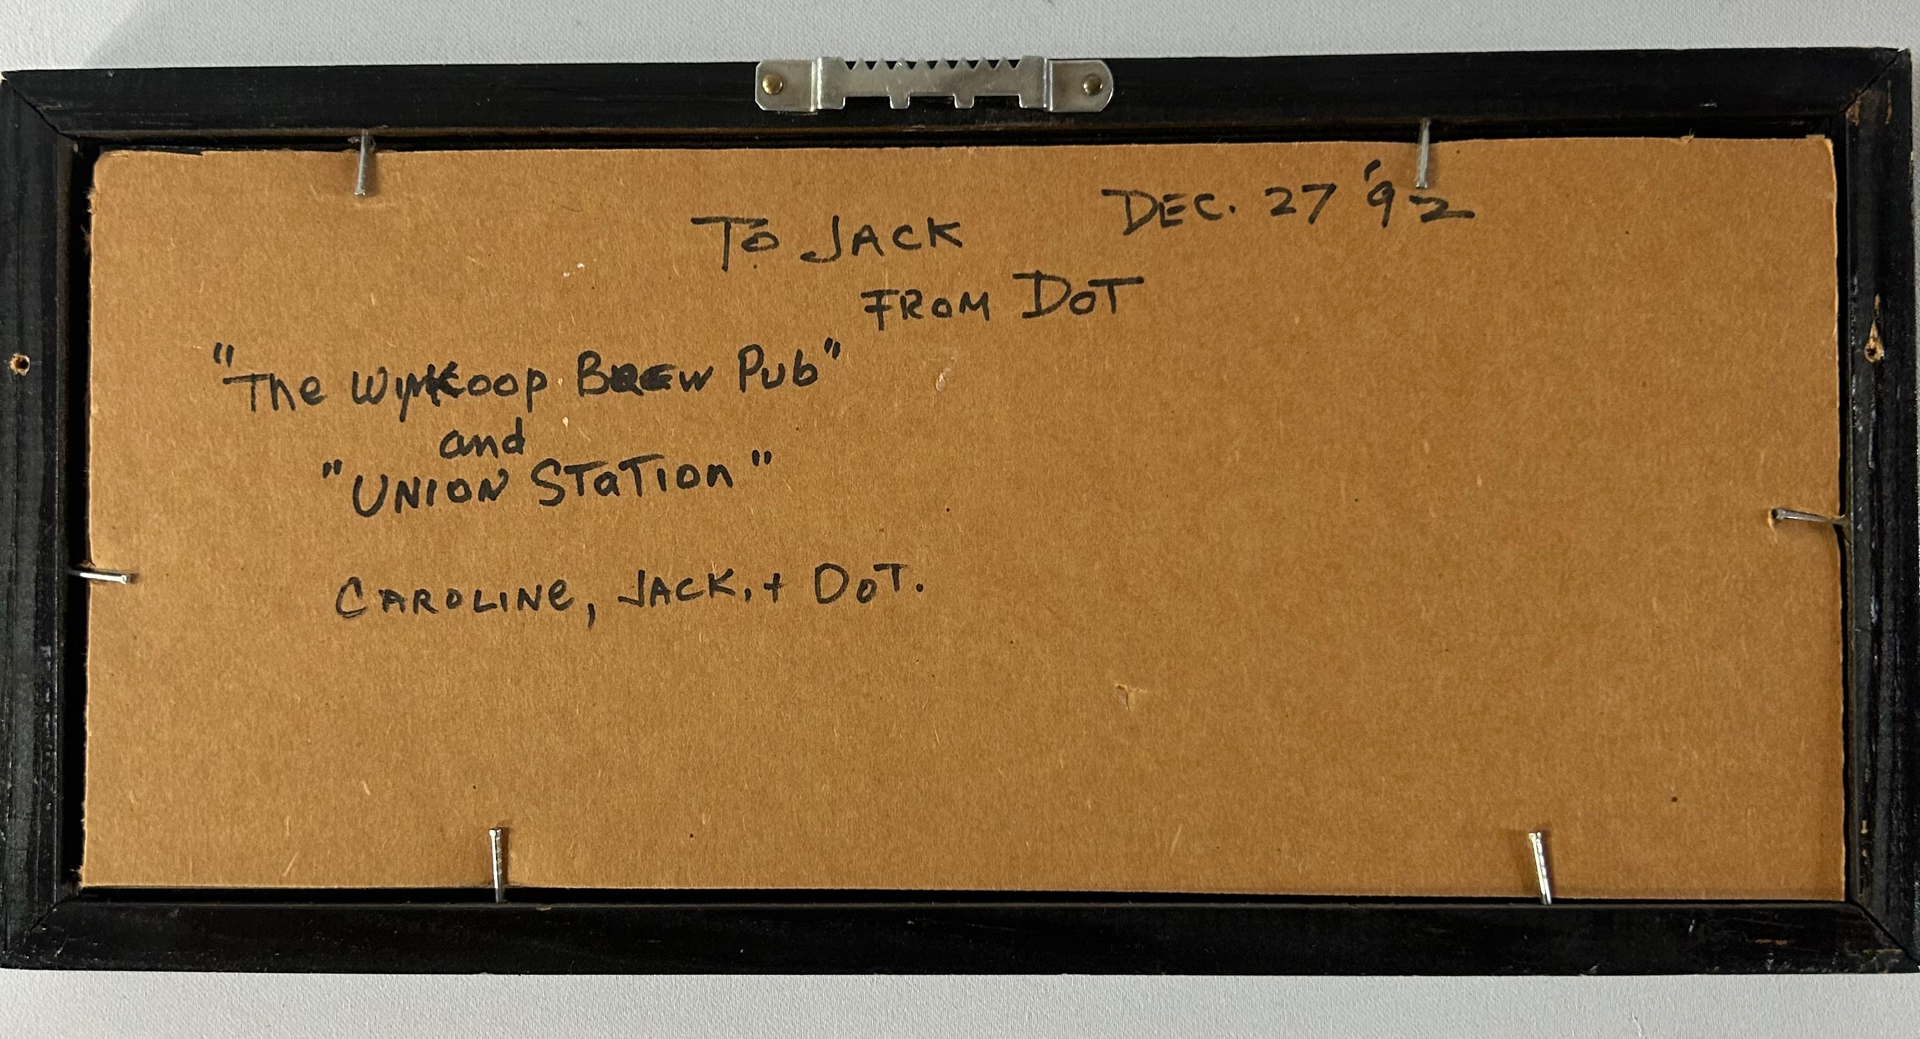 DEC. 27 '92
TO JACK
FROM DOT
"The Wynkoop BREW Pub"
and
"UNION STaTIon"
CAROLINe, JACK, + DOT.